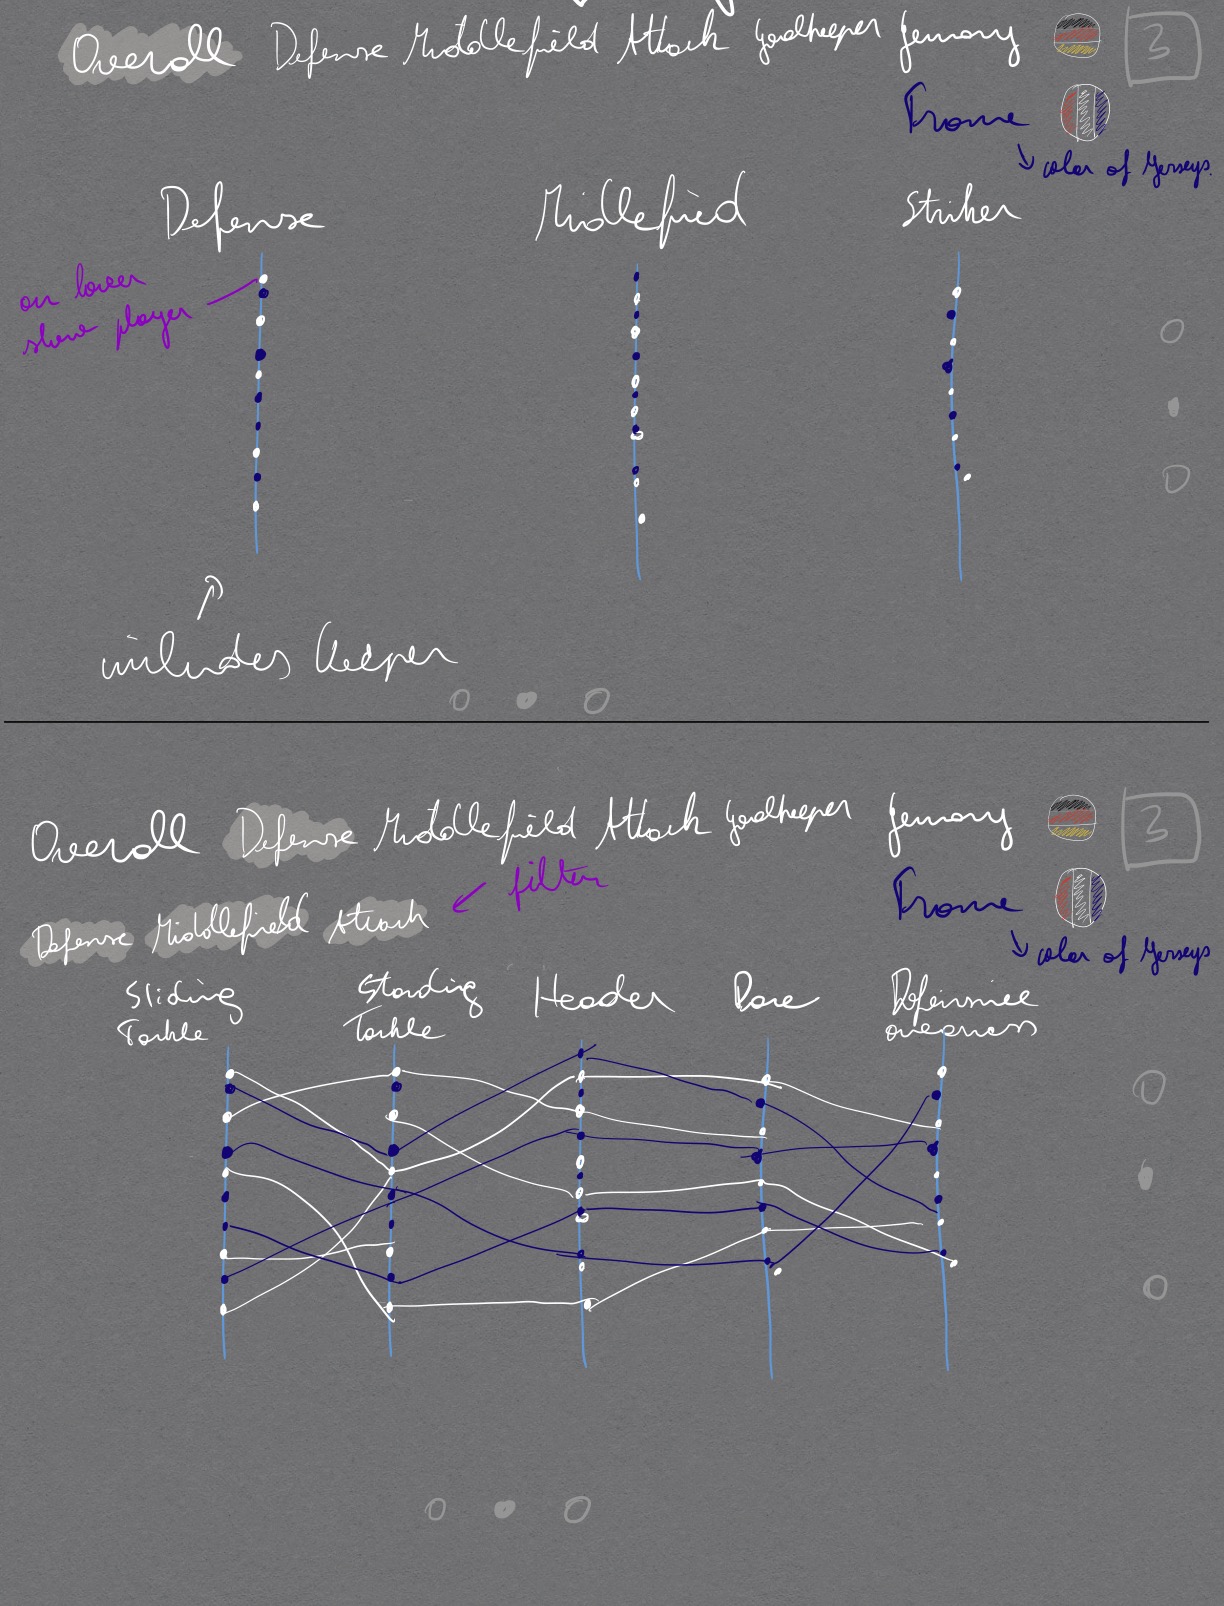 Overall Defense Middlefield Attack Goalkeeper Germany 3
France
↓ color of Jerseys.
Defense Middlefied Striker
on hover
show player
includes Keeper
Overall Defense Middlefield Attack Goalkeeper Germany 3
France
↓ color of Jerseys
Defense Middlefield Attack ← filter
Sliding Tackle Standing Tackle Header Pace Defensive awareness